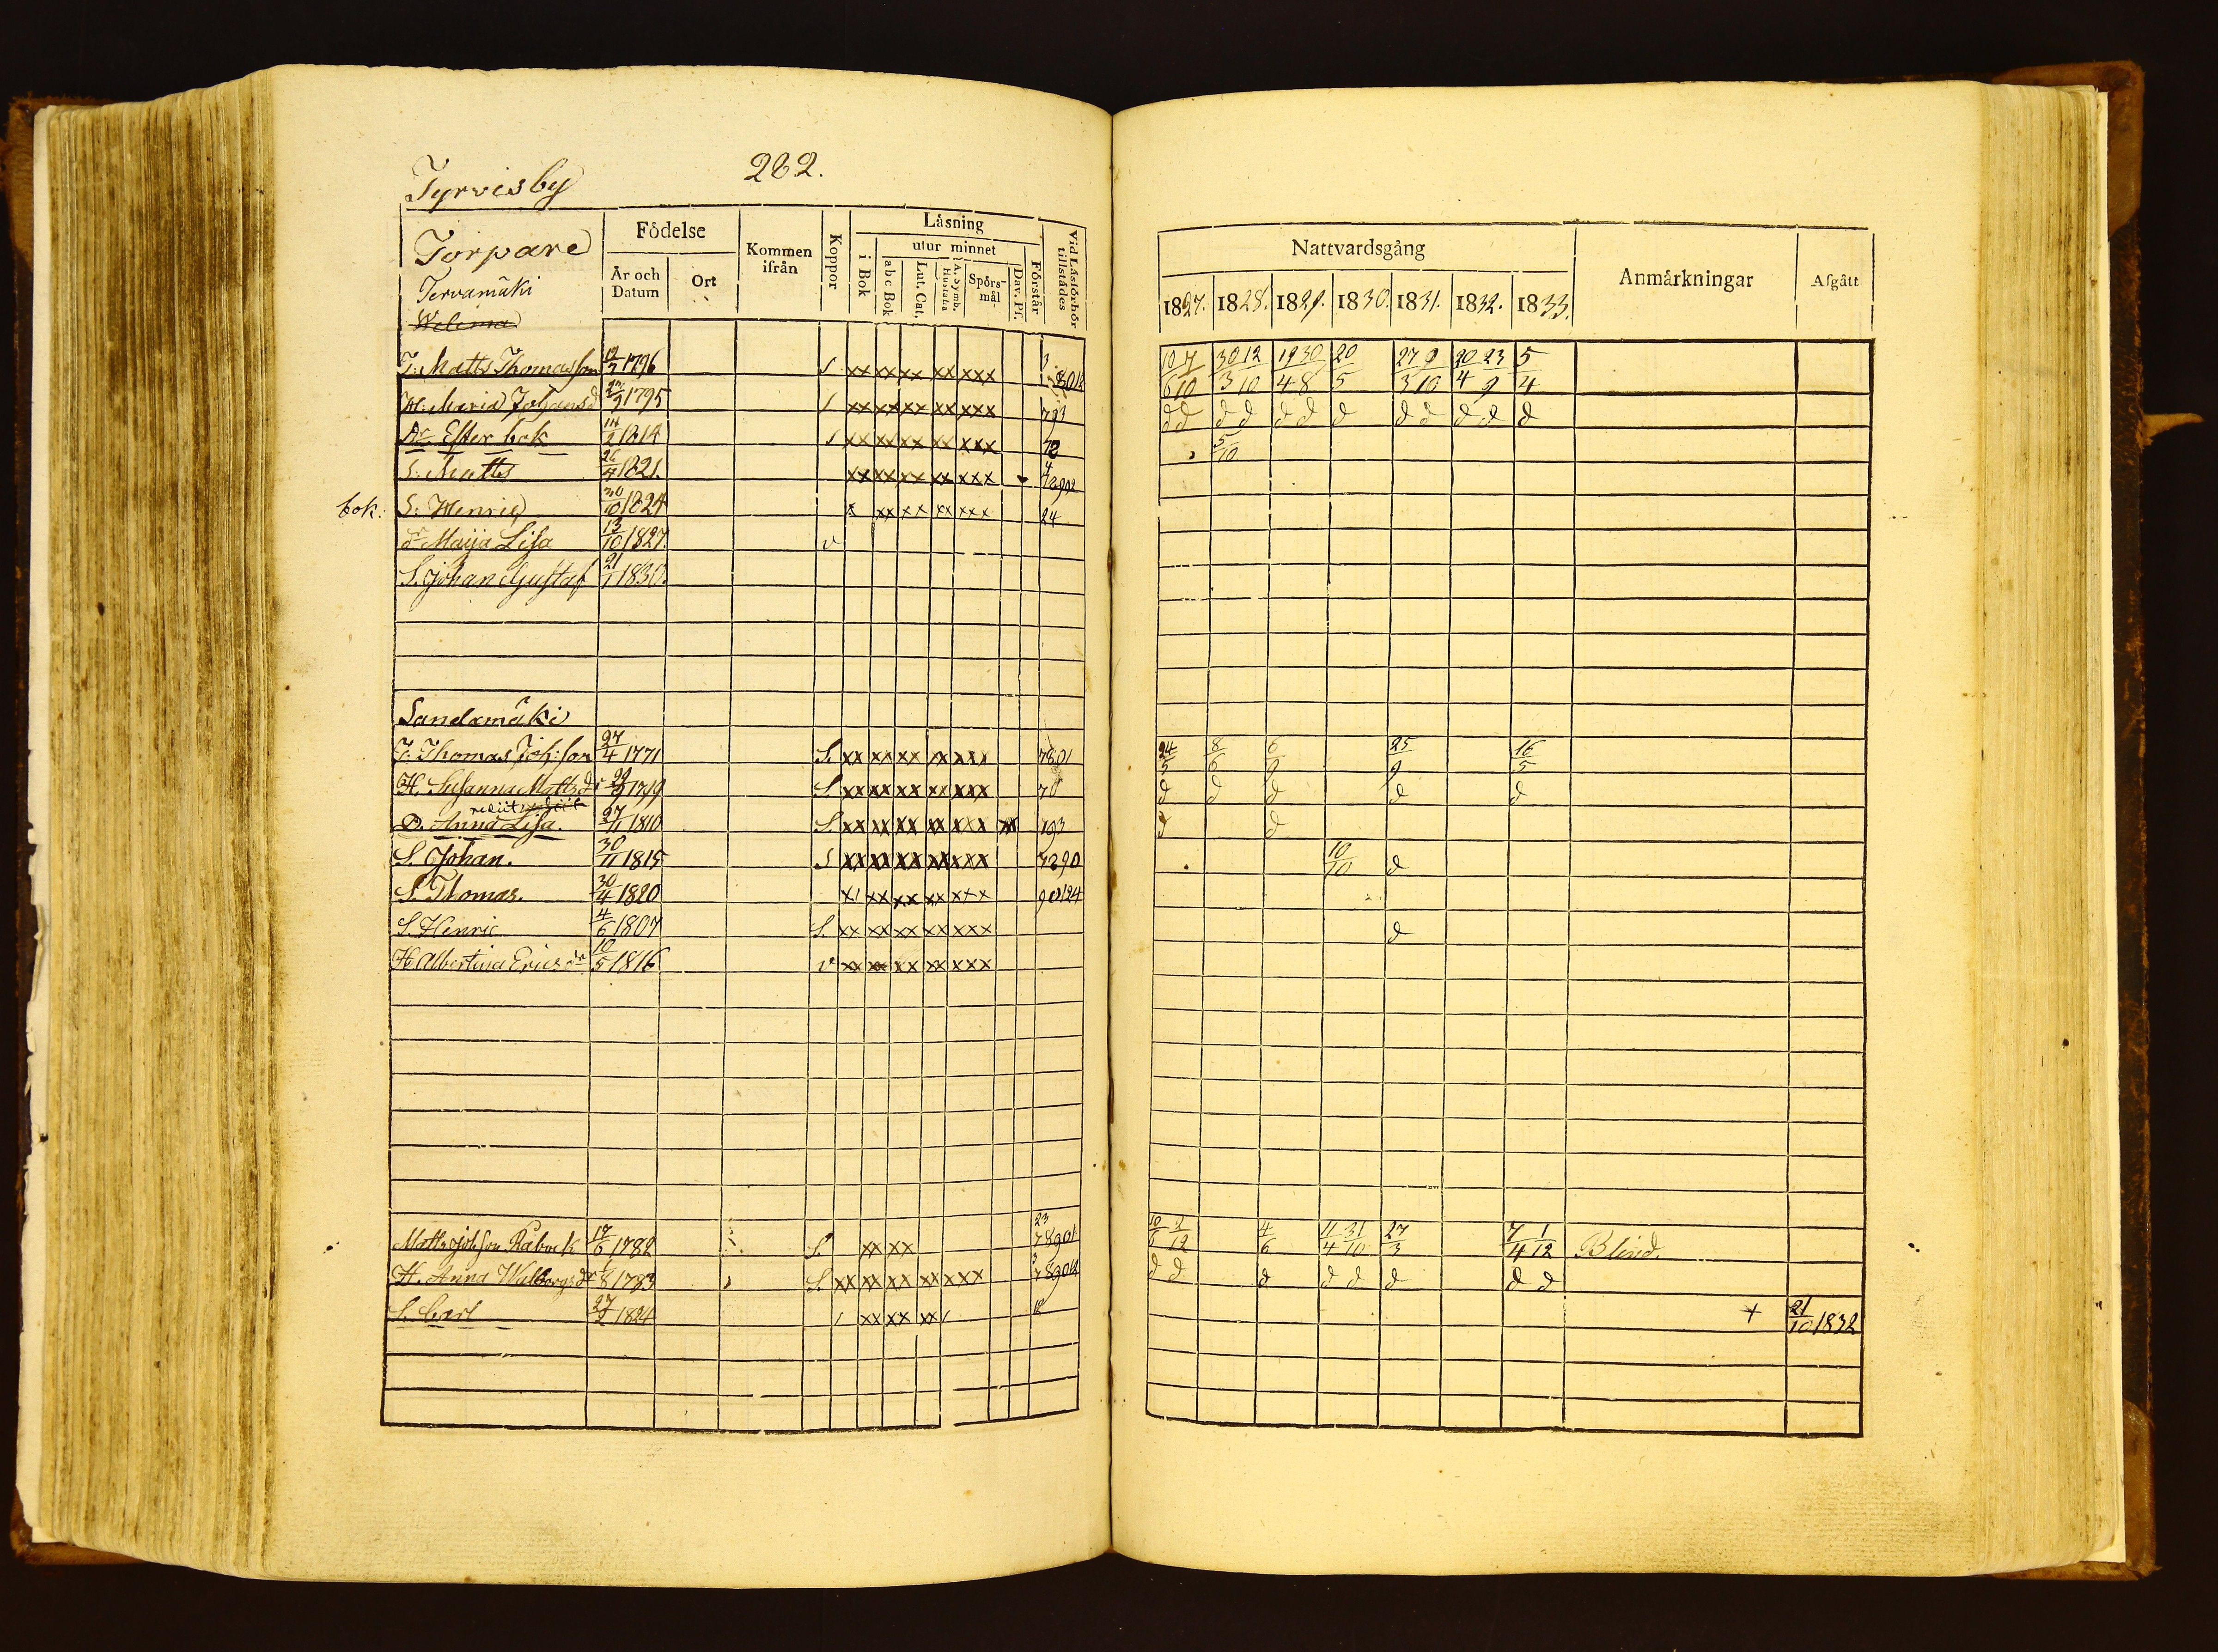 Tyrvisby 282.
Torpare Födelse Kommen ifrån Koppor Läsning Vid Läsförhör tillstädes
Tervamäki År och Datum Ort i Bok utur minnet Förstår
Welima a b c Bok Lut. Cat. A. Symb. Hustafla Spörs-mål Dav. Ps.
T. Matts Thomasson 12/7 1796 S xx xx xx xx xxx
H. Maria Johansd 1795 xx xx xx xx xxx 791
Dr Ester bok 14/2 1814 S xx xx xx xx xxx
S. Matts 26/4 1821. xx xx xx xx xxx
bok: S. Henric 30/10 1824 x xx xx xx xxx 24
dr Maija Lisa 13/10 1827. v
S. Johan Gustaf 21/1 1830.
Sandamäki
T. Thomas Joh:son 27/4 1771 S. xx xx xx xx xxx 7801
H. Susanna Mattsdr S. xx xx xx xx xxx
D. Anna Lisa. 27/11 1810 S. xx xx xx xx xxx xx 793
S. Johan. 30/11 1815 S xx xx xx xx xxx 7890
S. Thomas. 30/4 1820 x/ xx xx xx xxx
S. Henric 4/6 1807 S. xx xx xx xx xxx
H Albertina Ericsdr 10/5 1816 v xx xx xx xx xxx
Matts Johsson Råbock 17/6 1782 S. xx xx 23 78901
H. Anna Walborgsdr 8 1783 S. xx xx xx xx xxx
S. Carl 27/2 1824 / xx xx xx/ 12
Nattvardsgång Anmärkningar Afgått
1827. 1828. 1829. 1830. 1831. 1832. 1833.
10/6 7/10 30/3 12/10 19/4 30/8 20/5 27/3 9/10 20/4 23/9 5/4
d d d d d d d d d d d d
5/10
24/5 8/6 6/9 25/9 16/5
d d d d d
d d
10/10 d
d
10/6 2/12 4/6 11/4 31/10 27/3 7/4 1/12 Blind.
d d d d d d d d
+ 21/10 1832